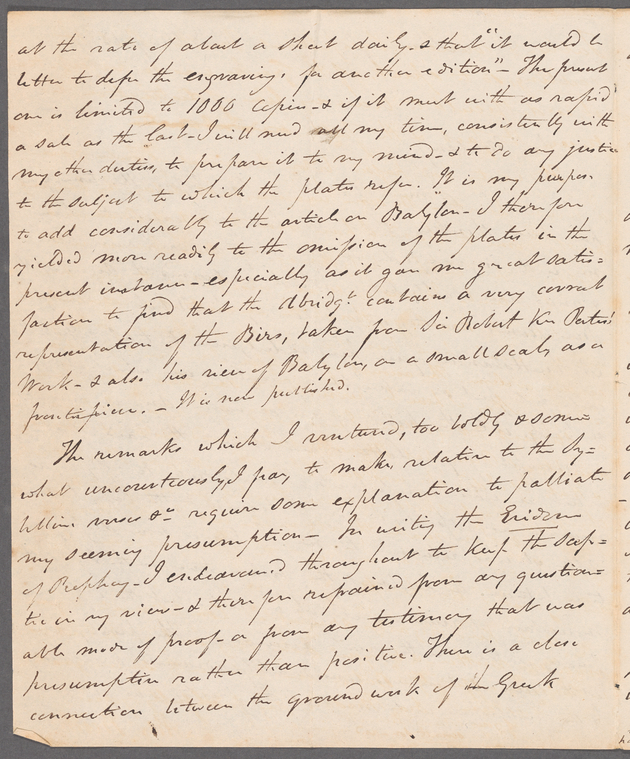 at the rate of about a sheet daily - & that "it would be
better to defer the engravings for another edition" - The present
one is limited to 1000 copies - & if it meet with as rapid
a sale as the last - I will need all my time, consistently with
my other duties, to prepare it to my mind - & to do any justice
to the subject to which the plates refer. It is my purpose
to add considerably to the article on Babylon - I therefore
yielded more readily to the omission of the plates in the
present instance - especially as it gave me great satis=
faction to find that the Abridgt. contains a very correct
representation of the Birs, taken from Sir Robert Ker Porter's
Work - & also his view of Babylon, on a small scale, as a
frontispiece. - It is now published.
The remarks which I ventured, too boldly & some=
what uncourteously, I fear, to make, relative to the Sy=
billine verses &c require some explanation to palliate
my seeming presumption - In writing the Evidence
of Prophecy - I endeavoured throughout to keep the scep=
tic in my view - & therefore refrained from any question=
able mode of proof - or from any testimony that was
presumptive rather than positive. There is a close
connection between the ground work of the Greek